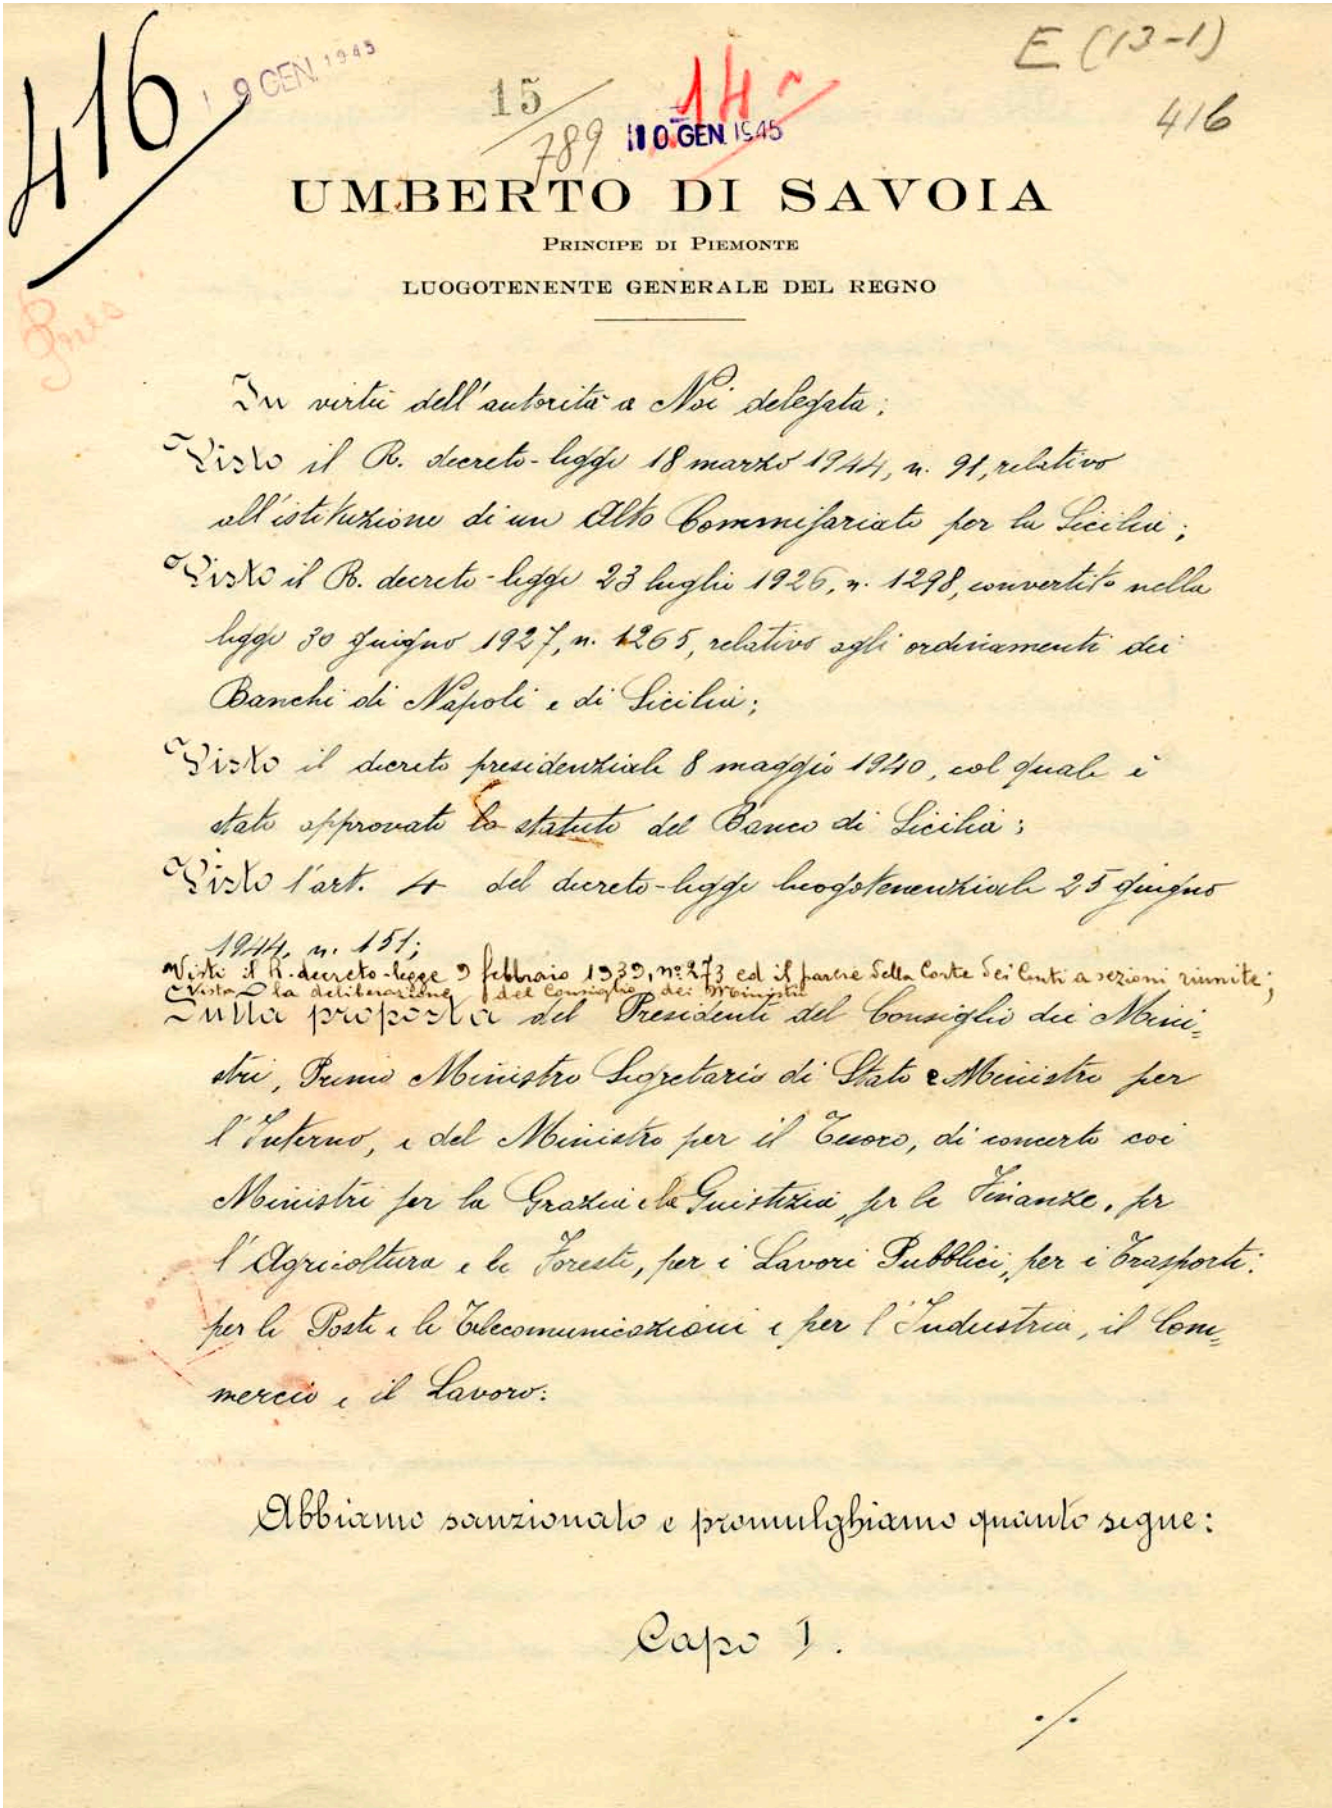 416
19 GEN. 1945
15
789
14
10 GEN. 1945
E (13-1)
416
UMBERTO DI SAVOIA
PRINCIPE DI PIEMONTE
LUOGOTENENTE GENERALE DEL REGNO
In virtù dell'autorità a Noi delegata;
Visto il R. decreto-legge 18 marzo 1944, n. 91, relativo
all'istituzione di un Alto Commissariato per la Sicilia;
Visto il R. decreto-legge 23 luglio 1926, n. 1298, convertito nella
legge 30 giugno 1927, n. 1265, relativo agli ordinamenti dei
Banchi di Napoli e di Sicilia;
Visto il decreto presidenziale 8 maggio 1940, col quale è
stato approvato lo statuto del Banco di Sicilia;
Visto l'art. 4 del decreto-legge luogotenenziale 25 giugno
1944, n. 151;
Visti il R. decreto-legge 9 febbraio 1939, n° 273 ed il parere della Corte dei Conti a sezioni riunite;
Vista la deliberazione del Consiglio dei Ministri
Sulla proposta del Presidente del Consiglio dei Mini=
stri, Primo Ministro Segretario di Stato e Ministro per
l'Interno, e del Ministro per il Tesoro, di concerto coi
Ministri per la Grazia e la Giustizia, per le Finanze, per
l'Agricoltura e le Foreste, per i Lavori Pubblici, per i Trasporti,
per le Poste e le Telecomunicazioni e per l'Industria, il Com=
mercio e il Lavoro:
Abbiamo sanzionato e promulghiamo quanto segue:
Capo I.
./.